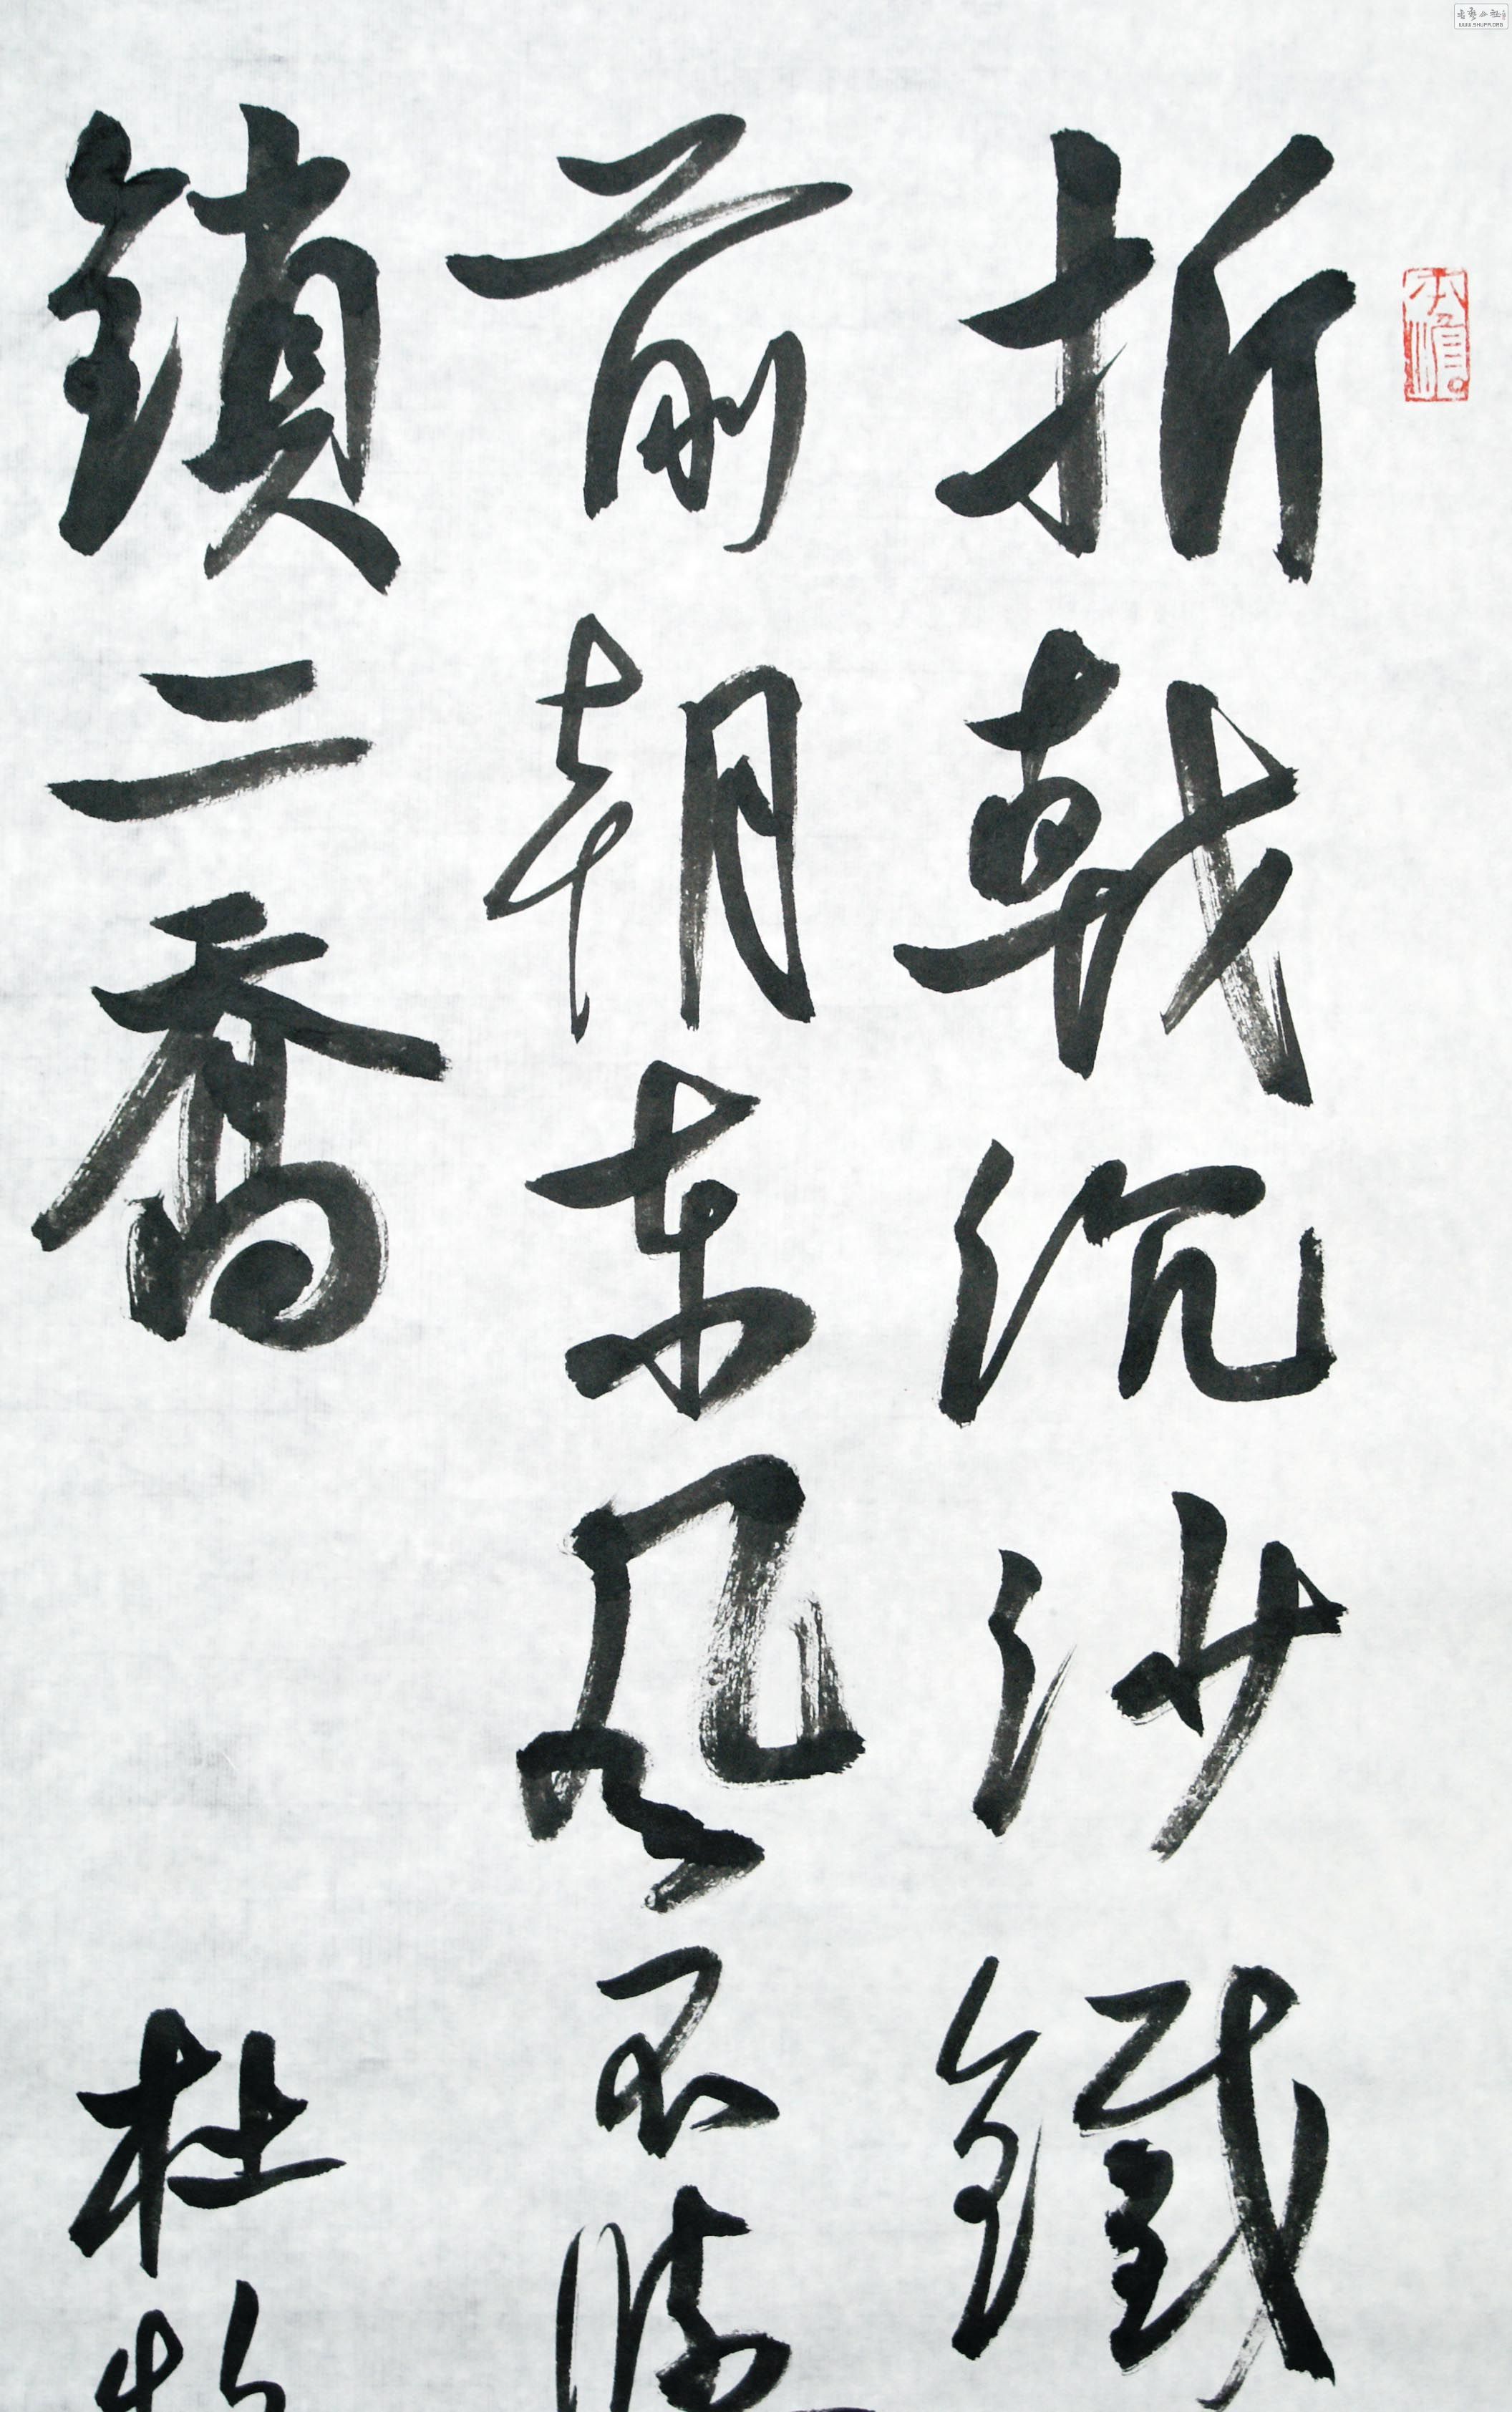 折戟沉沙鐵
前朝東風不
鎖二喬
杜牧
WWW.SHUFA.ORG